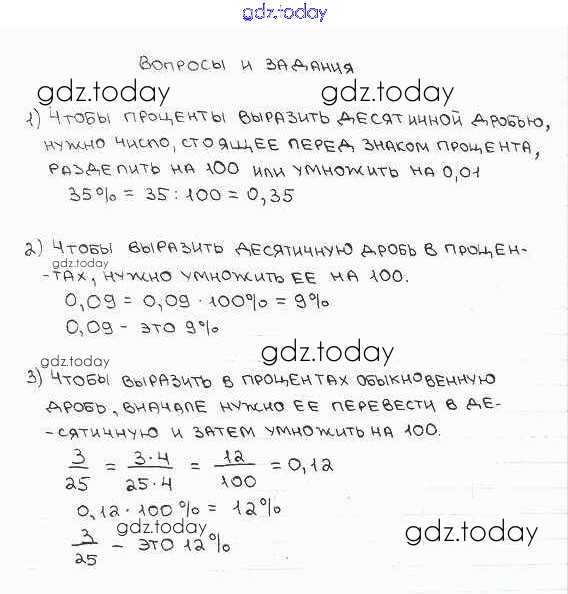 gdz.today
ВОПРОСЫ И ЗАДАНИЯ
gdz.today gdz.today
1) ЧТОБЫ ПРОЦЕНТЫ ВЫРАЗИТЬ ДЕСЯТИЧНОЙ ДРОБЬЮ,
НУЖНО ЧИСЛО, СТОЯЩЕЕ ПЕРЕД ЗНАКОМ ПРОЦЕНТА,
РАЗДЕЛИТЬ НА 100 ИЛИ УМНОЖИТЬ НА 0,01
35% = 35 : 100 = 0,35
2) ЧТОБЫ ВЫРАЗИТЬ ДЕСЯТИЧНУЮ ДРОБЬ В ПРОЦЕН-
gdz.today
-ТАХ, НУЖНО УМНОЖИТЬ ЕЕ НА 100.
0,09 = 0,09 · 100% = 9%
0,09 - ЭТО 9%
gdz.today gdz.today
3) ЧТОБЫ ВЫРАЗИТЬ В ПРОЦЕНТАХ ОБЫКНОВЕННУЮ
ДРОБЬ, ВНАЧАЛЕ НУЖНО ЕЕ ПЕРЕВЕСТИ В ДЕ-
-СЯТИЧНУЮ И ЗАТЕМ УМНОЖИТЬ НА 100.
3/25 = 3·4/25·4 = 12/100 = 0,12
0,12 · 100% = 12%
gdz.today gdz.today
3/25 - ЭТО 12%